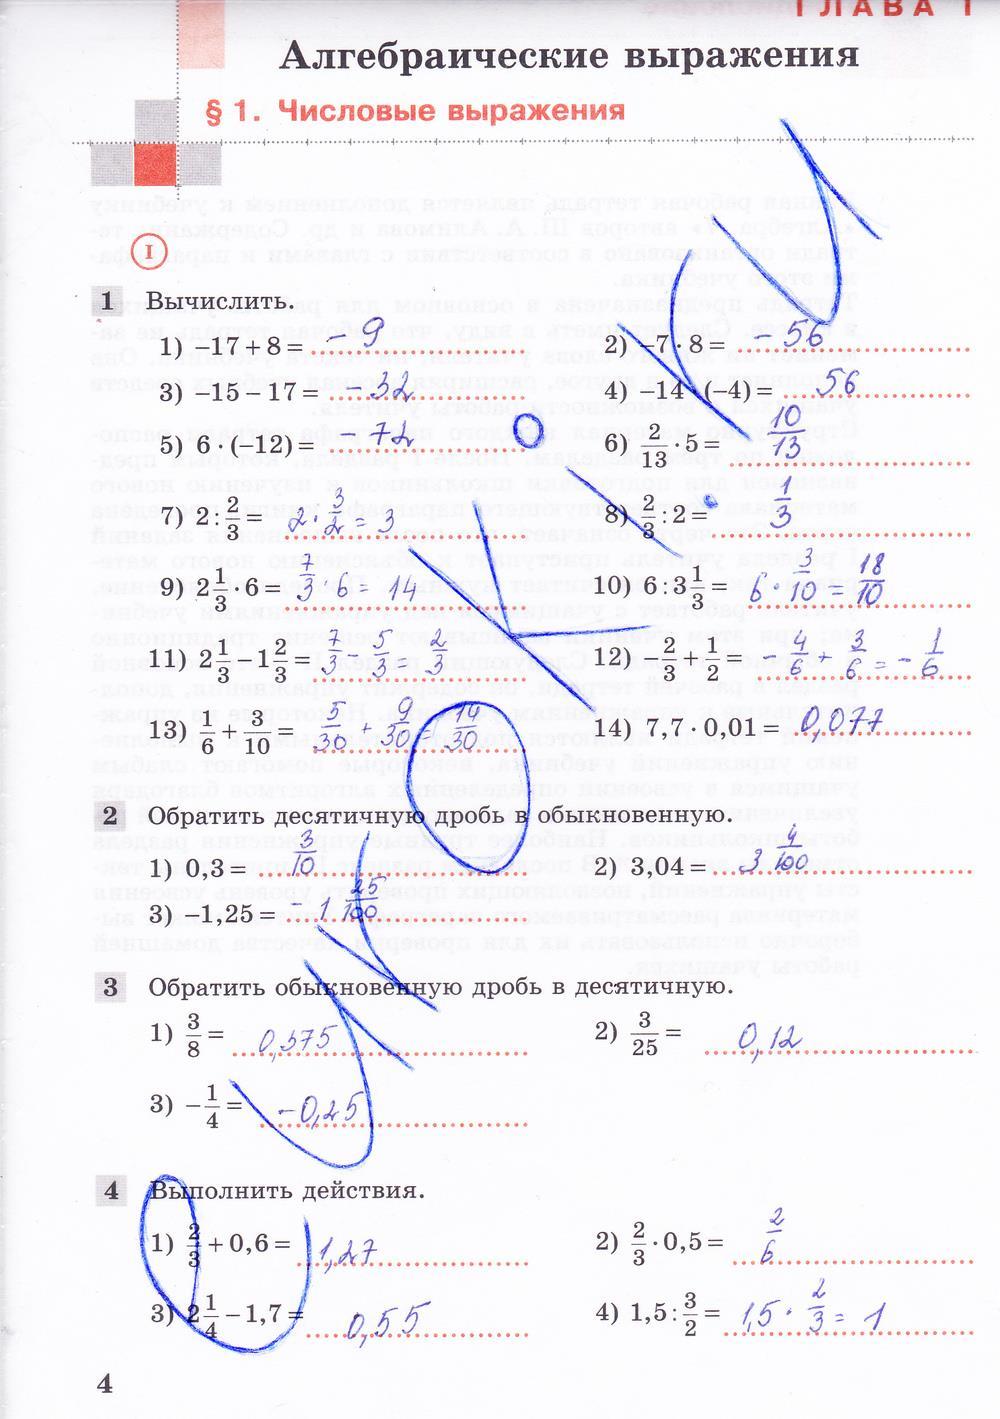 ГЛАВА 1
Алгебраические выражения
§ 1. Числовые выражения
I
1 Вычислить.
1) −17 + 8 = −9
2) −7 · 8 = −56
3) −15 − 17 = −32
4) −14 · (−4) = 56
5) 6 · (−12) = −72
6) 2/13 · 5 = 10/13
7) 2 : 2/3 = 2 · 3/2 = 3
8) 2/3 : 2 = 1/3
9) 2 1/3 · 6 = 7/3 · 6 = 14
10) 6 : 3 1/3 = 6 · 3/10 = 18/10
11) 2 1/3 − 1 2/3 = 7/3 − 5/3 = 2/3
12) −2/3 + 1/2 = −4/6 + 3/6 = −1/6
13) 1/6 + 3/10 = 5/30 + 9/30 = 14/30
14) 7,7 · 0,01 = 0,077
2 Обратить десятичную дробь в обыкновенную.
1) 0,3 = 3/10
2) 3,04 = 3 4/100
3) −1,25 = −1 25/100
3 Обратить обыкновенную дробь в десятичную.
1) 3/8 = 0,375
2) 3/25 = 0,12
3) −1/4 = −0,25
4 Выполнить действия.
1) 2/3 + 0,6 = 1,27
2) 2/3 · 0,5 = 2/6
3) 2 1/4 − 1,7 = 0,55
4) 1,5 : 3/2 = 1,5 · 2/3 = 1
4